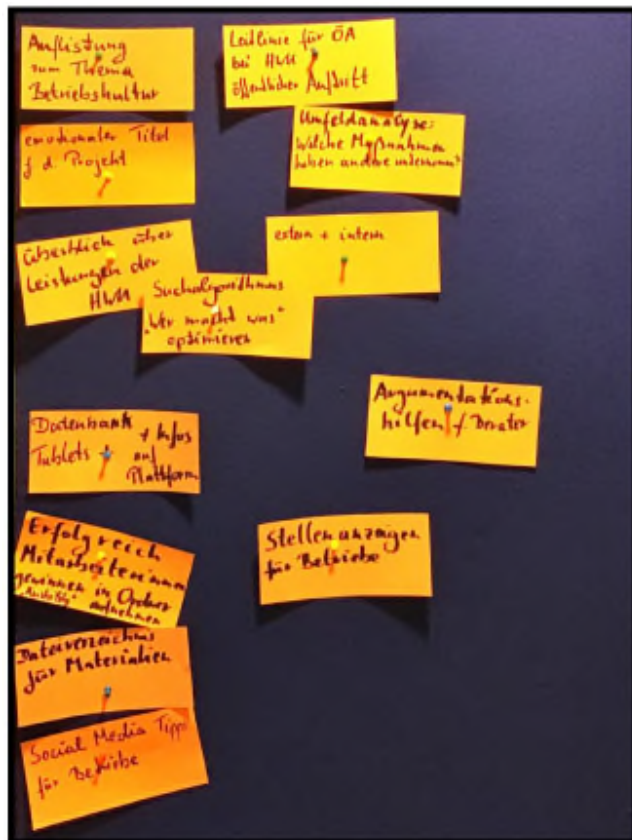 Auflistung
zum Thema
Betriebskultur
Leitlinie für ÖA
bei HWK
öffentlicher Auftritt
emotionaler Titel
f. d. Projekt
Umfeldanalyse:
Welche Maßnahmen
haben andere
Überblick über
Leistungen der
HWK
extern + intern
Suchalgorithmus
"Wer macht was"
optimieren
Datenbank + Infos
Tablets auf
Plattform
Argumentations-
hilfen f. Berater
Erfolgreich
Mitarbeiterinnen
gewinnen in Ordner
aufnehmen
Stellenanzeigen
für Betriebe
Dateiverzeichnis
für Materialien
Social Media Tipps
für Betriebe